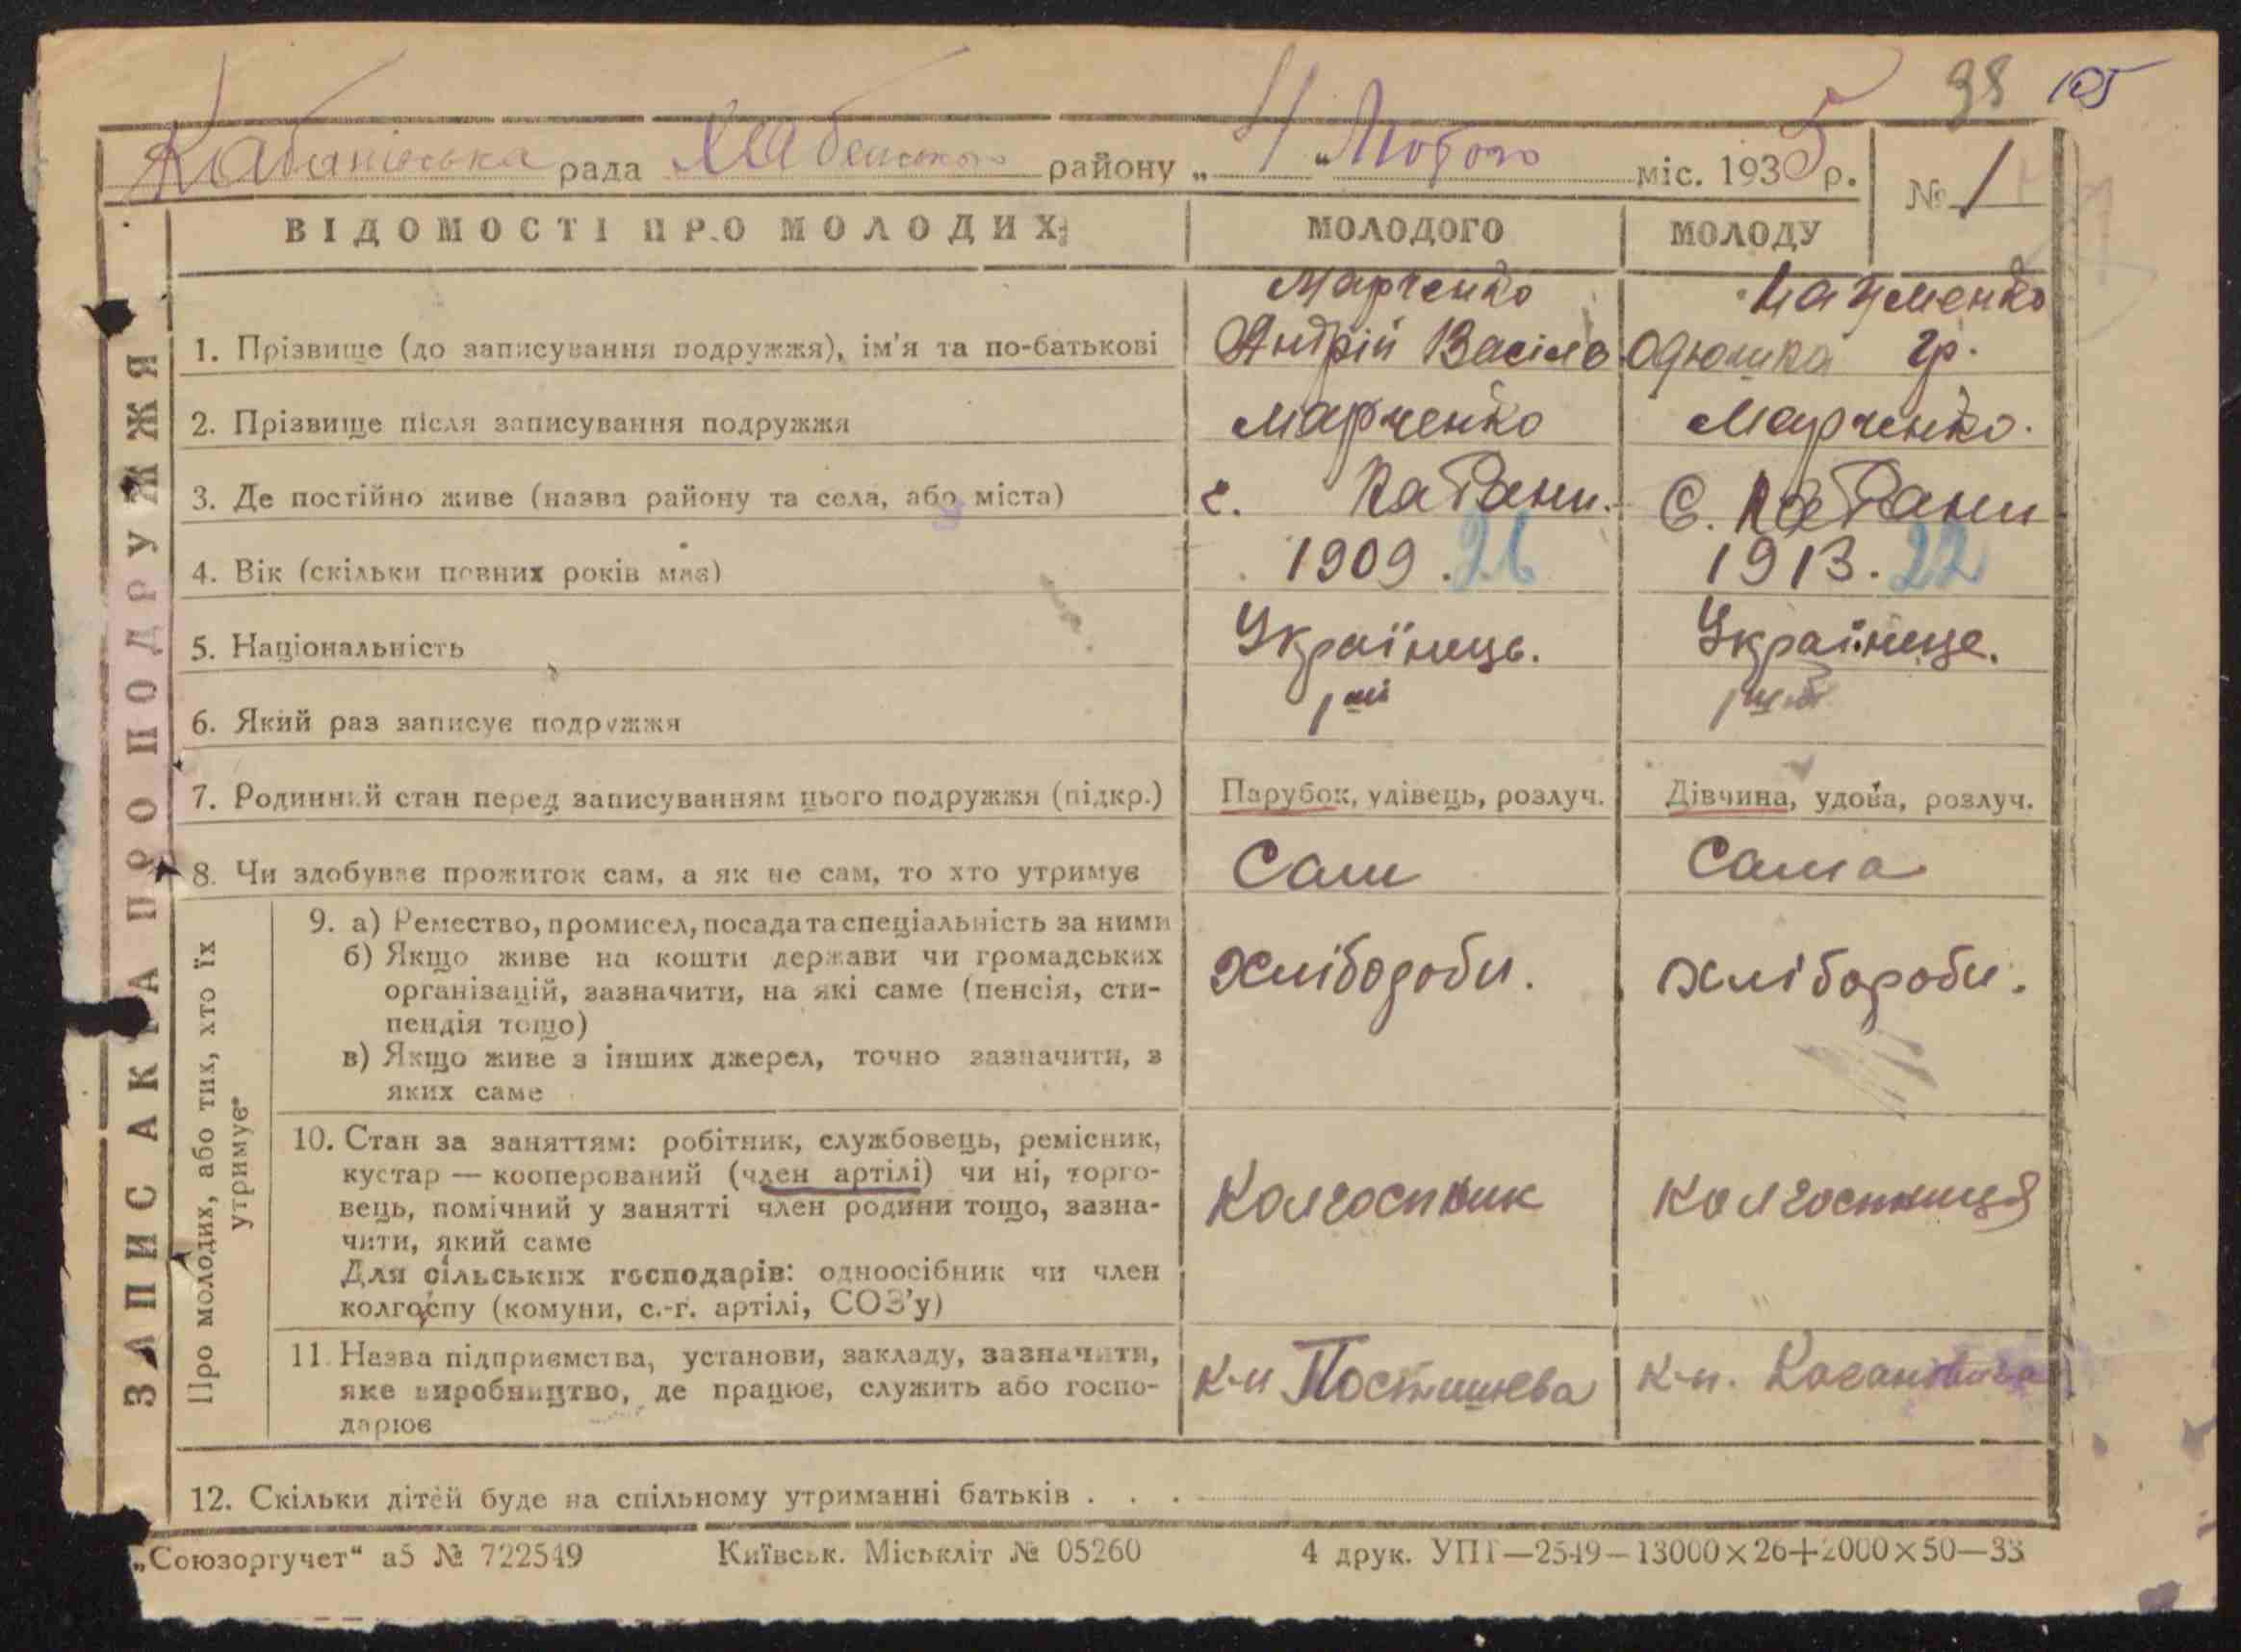 98 105
Кабанівська рада району „ 4 “ Лютого міс. 1935 р. № 1
ВІДОМОСТІ ПРО МОЛОДИХ: МОЛОДОГО МОЛОДУ
Марченко
1. Прізвище (до записування подружжя), ім'я та по-батькові Андрій Васіль гр.
2. Прізвище після записування подружжя Марченко Марченко.
3. Де постійно живе (назва району та села, або міста) с. Кабани. С. Кабани
4. Вік (скільки повних років має) 1909. 26 1913. 22
5. Національність Українець. Українце.
6. Який раз записує подружжя 1ий
7. Родинний стан перед записуванням цього подружжя (підкр.) Парубок, удівець, розлуч. Дівчина, удова, розлуч.
8. Чи здобуває прожиток сам, а як не сам, то хто утримує Сам Сама
9. а) Ремество, промисел, посада та спеціальність за ними
б) Якщо живе на кошти держави чи громадських Хлібороби. Хлібороби.
організацій, зазначити, на які саме (пенсія, сти-
пендія тощо)
в) Якщо живе з інших джерел, точно зазначити, з
яких саме
10. Стан за заняттям: робітник, службовець, ремісник,
кустар — кооперований (член артілі) чи ні, торго-
вець, помічний у занятті член родини тощо, зазна- Колгоспник Колгоспниця
чити, який саме
Для сільських господарів: одноосібник чи член
колгоспу (комуни, с.-г. артілі, СОЗ'у)
11. Назва підприємства, установи, закладу, зазначити,
яке виробництво, де працює, служить або госпо- к-п Постишева к-п. Кагановича
дарює
12. Скільки дітей буде на спільному утриманні батьків . . .
ЗАПИС АКТА ПРО ПОДРУЖЖЯ
Про молодих, або тих, хто їх
утримує
„Союзоргучет“ а5 № 722549 Київськ. Міськліт № 05260 4 друк. УПТ—2549—13000×26+2000×50—33